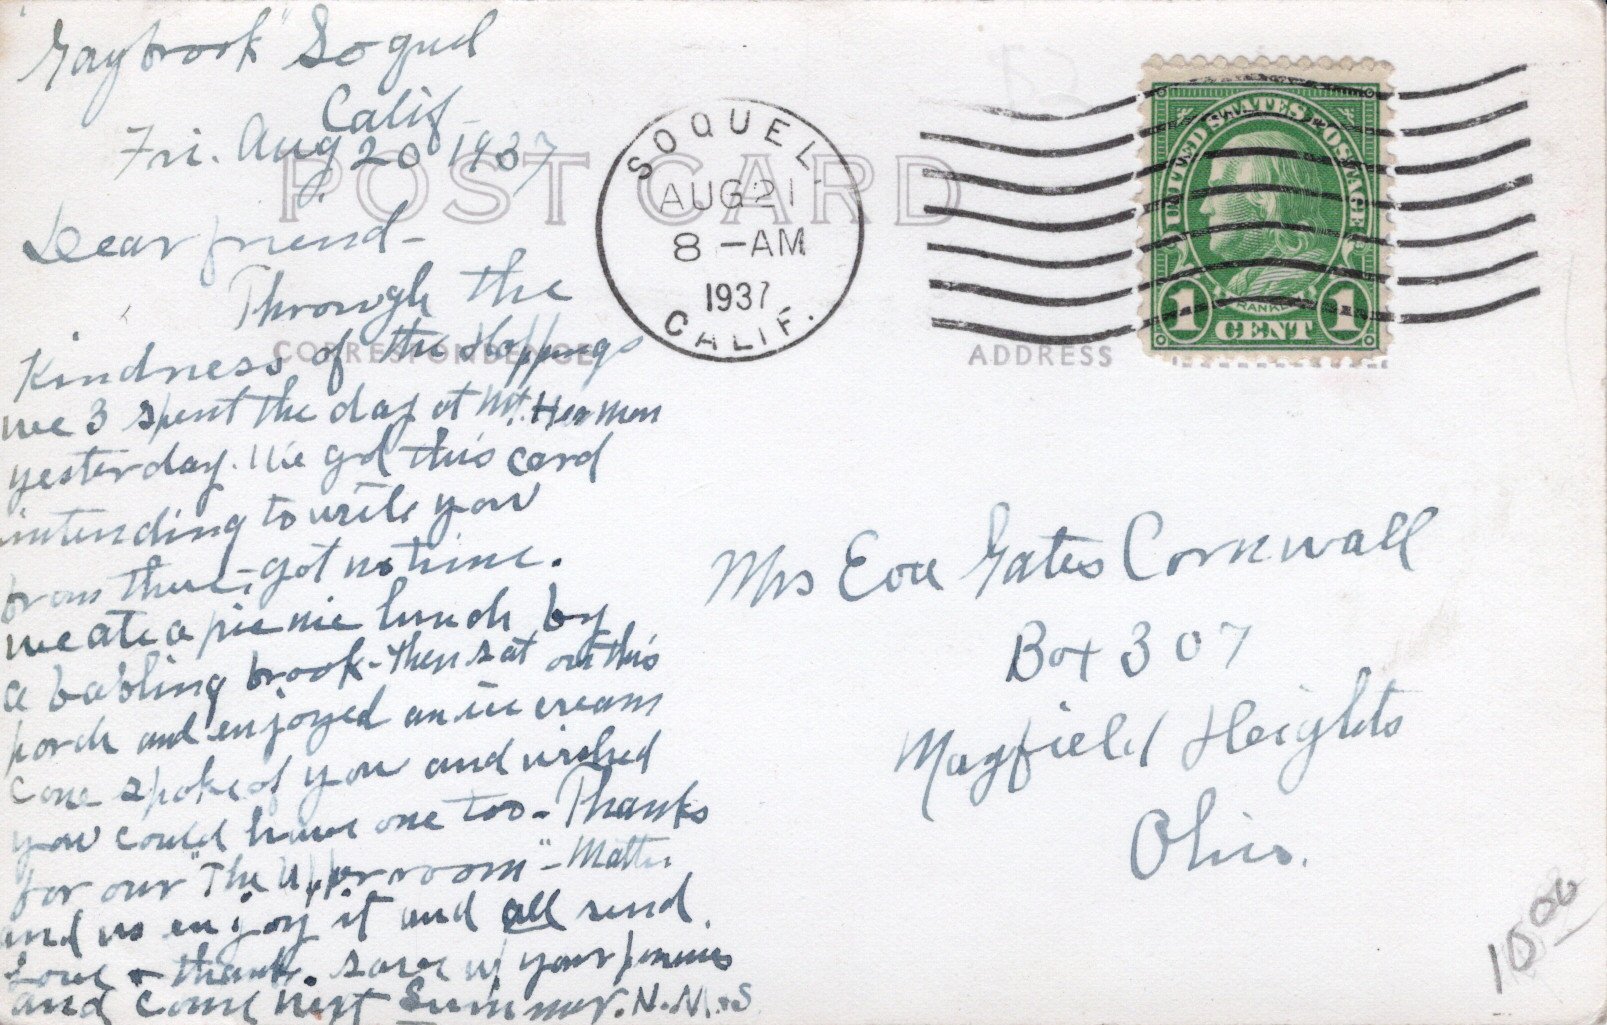 "Gaybrook" Soquel
Calif.
Fri. Aug 20 1937
POST CARD
SOQUEL
AUG 21
8 -AM
1937
CALIF.
UNITED STATES POSTAGE
FRANKLIN
1 CENT 1
CORRESPONDENCE
ADDRESS
Dear friend-
Through the
Kindness of the Hoppings
we 3 spent the day at Mt. Hermon
yesterday. We got this card
intending to write you
from there, got no time.
we ate a picnic lunch by
a babling brook - then sat on this
porch and enjoyed an ice cream
cone spoke of you and wished
you could have one too - Thanks
for our "The Upper room" -
and us enjoy it and all send
Love & thanks. save up your pennies
and come next Summer. N.N.
Mrs Eva Gates Cornwall
Box 307
Mayfield Heights
Ohio.
10.00